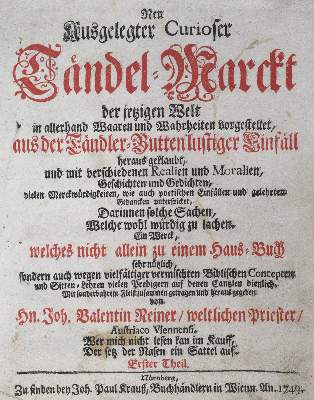 Neu
Ausgelegter Curioser
Tändel-Marckt
der jetzigen Welt
in allerhand Waaren und Wahrheiten vorgestellet,
aus der Tändler-Butten lustiger Einfäll
heraus geklaubt,
und mit verschiedenen Realien und Moralien,
Geschichten und Gedichten,
vielen Merckwürdigkeiten, wie auch poetischen Einfällen und gelehrten
Gedancken unterspicket,
Darinnen solche Sachen,
Welche wohl würdig zu lachen.
Ein Werck,
welches nicht allein zu einem Haus-Buch
sehr nützlich,
sondern auch wegen vielfältiger vermischten Biblischen Concepten,
und Sitten-Lehren vielen Predigern auf denen Cantzlen dienlich.
Mit sonderbahrem Fleiß zusammen getragen und heraus gegeben
von
Hn. Joh. Valentin Neiner/ weltlichen Priester/
Austriaco Viennens.
Wer mich nicht lesen kan im Kauff,
Der setz der Nasen ein Sattel auf.
Erster Theil.
Nürnberg,
Zu finden bey Joh. Paul Krauß, Buchhändlern in Wienn. An.